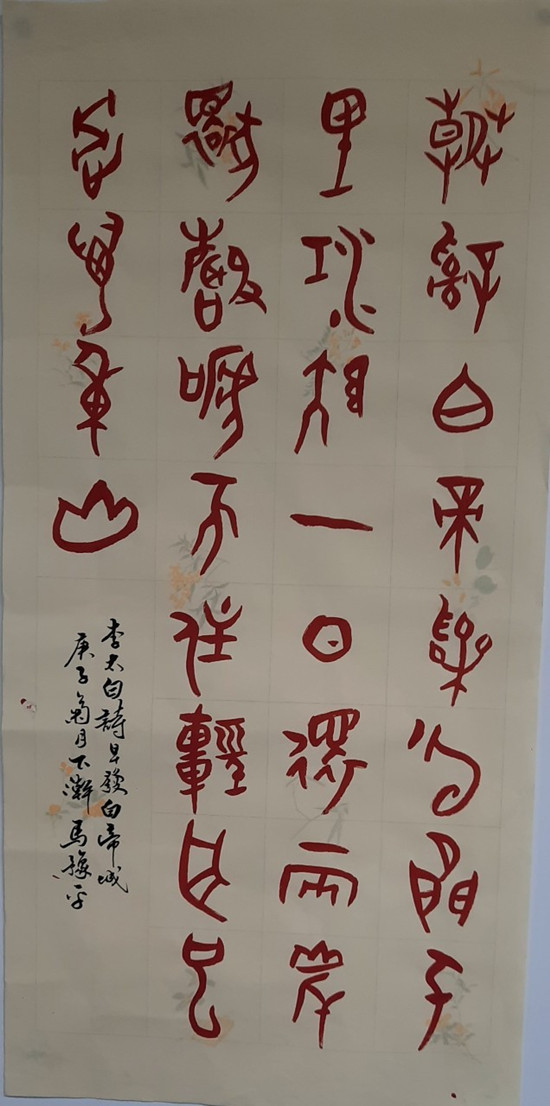 朝辭白帝彩云間千
里江陵一日還兩岸
猿聲啼不住輕舟已
過萬重山
李太白詩早發白帝城
庚子菊月下澣 馬平